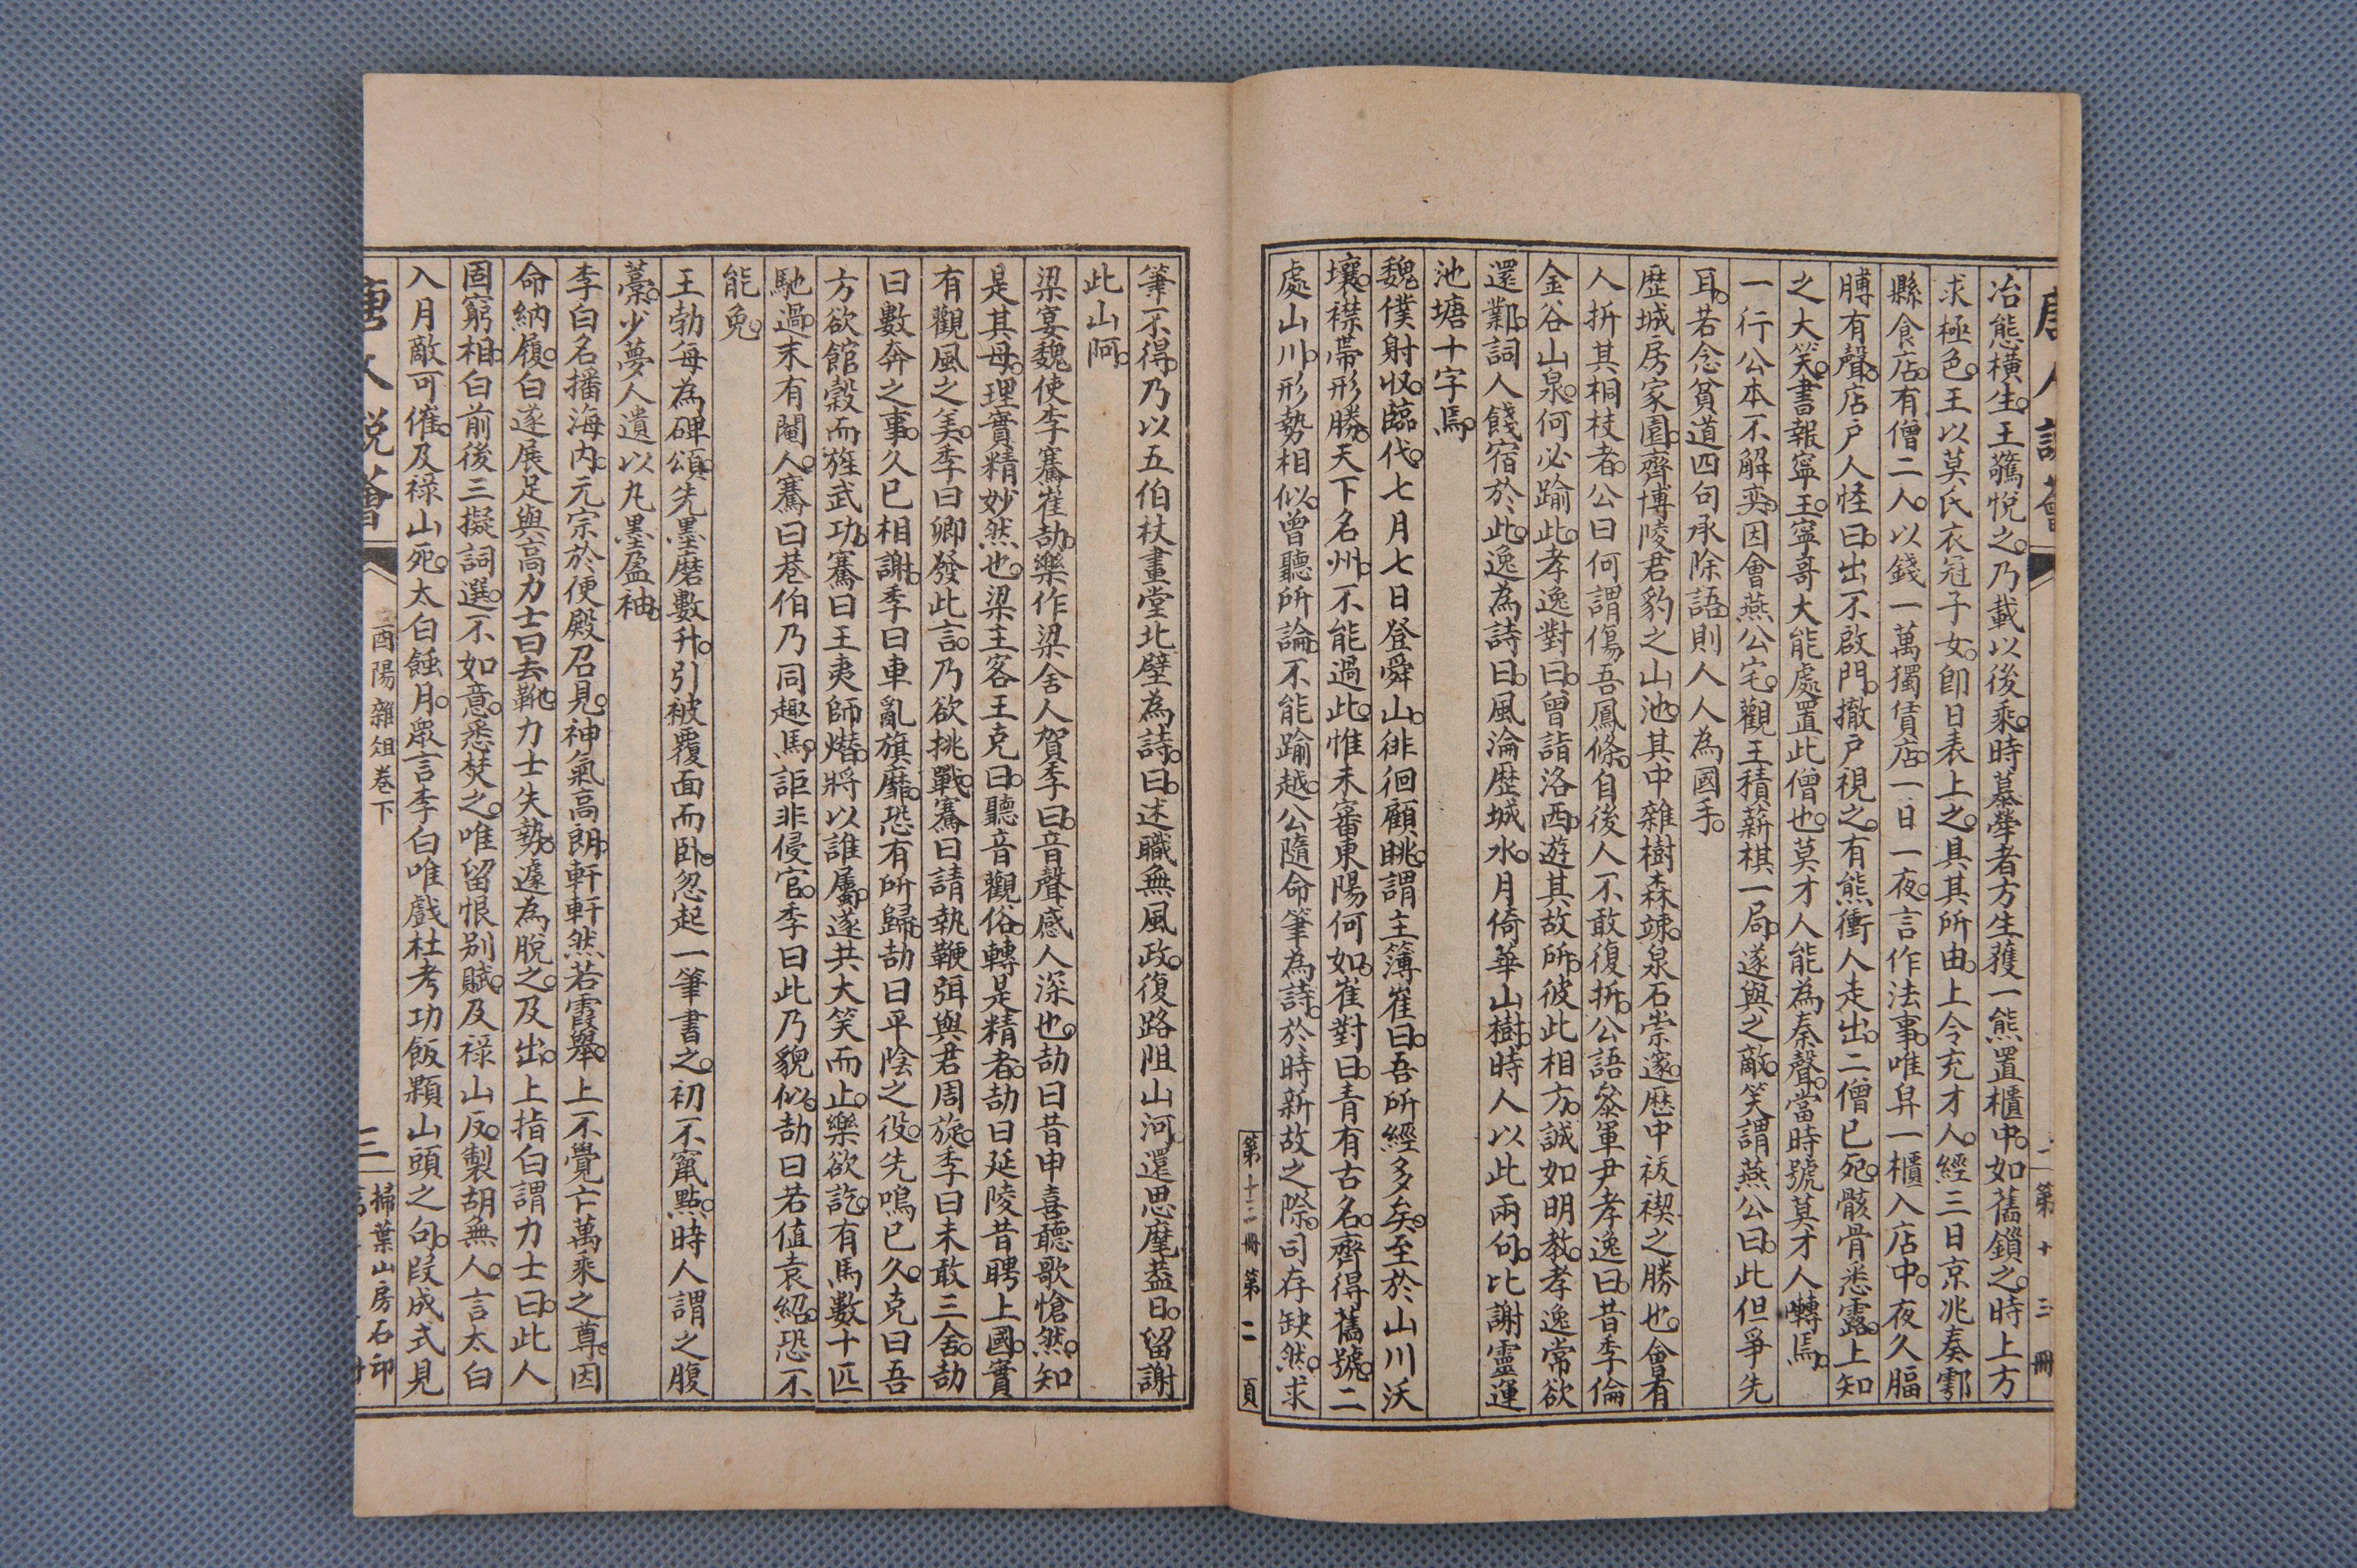 唐人說薈
二
第十三冊
冶態橫生。王驚悅之。乃載以後乘。時慕犖者方生獲一熊置櫃中。如舊鎖之。時上方
求極色。王以莫氏衣冠子女。即日表上之。具其所由。上令充才人。經三日京兆奏鄠
縣食店。有僧二人。以錢一萬獨賃店。一日一夜。言作法事。唯舁一櫃入店中。夜久腷
膊有聲。店戶人怪曰。出不啟門。撤戶視之。有熊衝人走出。二僧已死。骸骨悉露。上知
之大笑。書報寧王。王寧哥大能處置此僧也。莫才人能為秦聲。當時號莫才人囀焉。
一行公本不解奕。因會燕公宅。觀王積薪棋一局。遂與之敵。笑謂燕公曰。此但爭先
耳。若念貧道四句承除語。則人人為國手。
歷城房家園。齊博陵君豹之山池。其中雜樹森竦。泉石崇邃。歷中祓禊之勝也。會有
人折其桐枝者。公曰何謂傷吾鳳條。自後人不敢復折。公語叅軍尹孝逸曰。昔季倫
金谷山泉。何必踰此。孝逸對曰。曾詣洛西。遊其故所。彼此相方。誠如明教。孝逸常欲
還鄴。詞人餞宿於此。逸為詩曰。風淪歷城水。月倚華山樹。時人以此兩句。比謝靈運
池塘十字焉。
魏僕射收。臨代。七月七日登舜山。徘徊顧眺。謂主簿崔曰。吾所經多矣。至於山川沃
壤。襟帶形勝。天下名州。不能過此。惟未審東陽何如。崔對曰。青有古名。齊得舊號。二
處山川。形勢相似。曾聽所論。不能踰越。公隨命筆為詩。於時新故之際。司存缺然。求
第十三冊第二頁
筆不得。乃以五伯杖畫堂北壁為詩。曰。述職無風政。復路阻山河。還思麾葢日。留謝
此山阿。
梁宴魏使李騫崔劼。樂作梁舍人賀季曰。音聲感人深也。劼曰昔申喜聽歌愴然。知
是其母。理實精妙然也。梁主客王克曰。聽音觀俗。轉是精者。劼曰延陵昔聘上國。實
有觀風之美。季曰卿發此言。乃欲挑戰。騫曰請執鞭弭與君周旋。季曰未敢三舍。劼
曰數奔之事。久已相謝。季曰車亂旗靡。恐有所歸。劼曰平陰之役。先鳴已久。克曰吾
方欲館穀而旌武功。騫曰王夷師熸。將以誰屬。遂共大笑而止。樂欲訖。有馬數十匹
馳過。末有閹人。騫曰巷伯乃同趣馬。詎非侵官。季曰此乃貌似。劼曰若值袁紹。恐不
能免。
王勃每為碑頌。先墨磨數升。引被覆面而臥。忽起一筆書之。初不竄點。時人謂之腹
藁。少夢人遺以丸墨盈袖。
李白名播海內。元宗於便殿召見。神氣高朗。軒軒然若霞舉。上不覺亡萬乘之尊。因
命納履。白遂展足與高力士曰去靴。力士失勢。遽為脫之。及出。上指白謂力士曰。此人
固窮相。白前後三擬詞選。不如意。悉焚之。唯留恨別賦。及祿山反。製胡無人。言太白
入月敵可催。及祿山死。太白蝕月。眾言李白唯戲杜考功飯顆山頭之句。段成式見
唐人說薈
酉陽雜俎卷下
三
掃葉山房石印